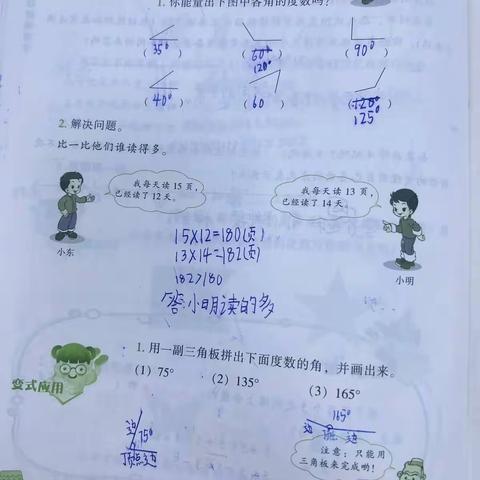 1. 你能量出下图中各角的度数吗？
(35°) (60° 120°) (90°)
(40°) (60) (120° 125°)
2. 解决问题。
比一比他们谁读得多。
我每天读 15 页，
已经读了 12 天。
我每天读 13 页，
已经读了 14 天。
小东
小明
15×12=180(页)
13×14=182(页)
182>180
答:小明读的多
1. 用一副三角板拼出下面度数的角，并画出来。
变式应用
(1) 75° (2) 135° (3) 165°
边 75°
顶点 边
165°
边 顶点 边
注意：只能用
三角板来完成哟！